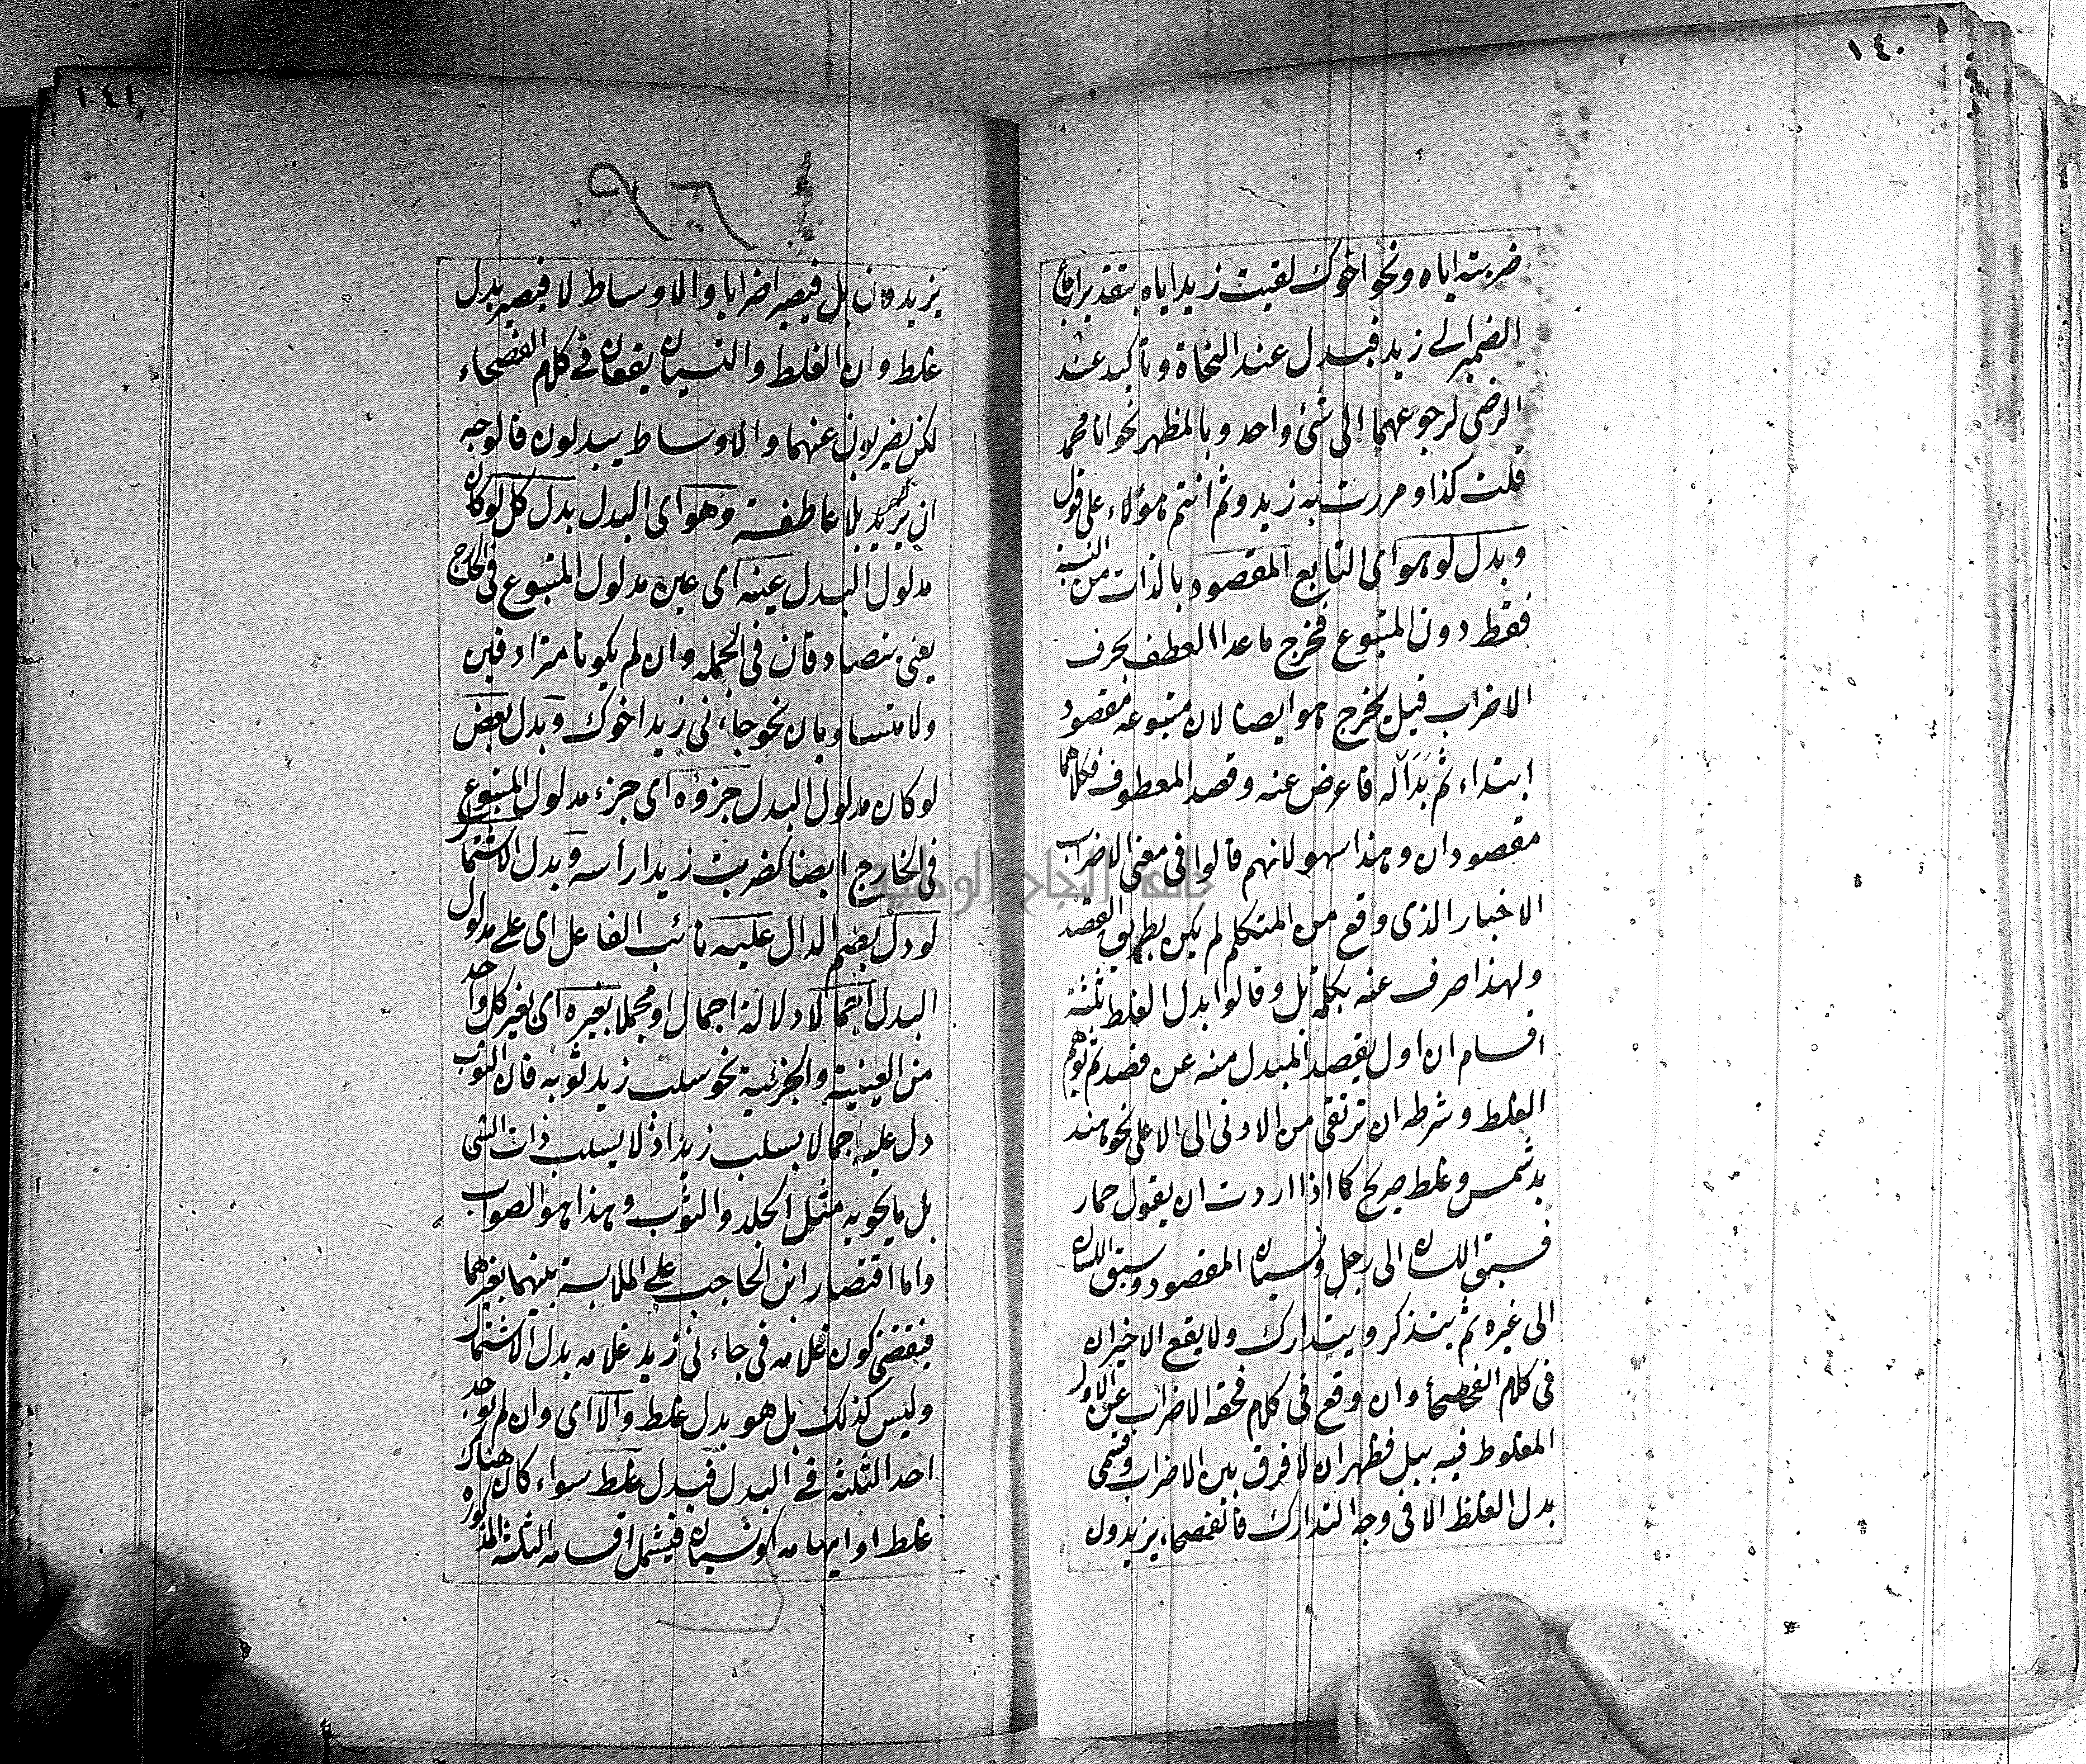 ١٤٠
ضربته اياه ونحو اخوك لقيت زيدا اياه بتقدير
الضمير الى زيد فبدل عند النحاة وتأكيد عند
الرضى لرجوعهما الى شئ واحد وبالمظهر نحو انا محمد
قلت كذا ومررت به زيد وثم انتم هؤلاء على قول
وبدل لو هو اى التابع المقصود بالذات من النسبة
فقط دون المتبوع فخرج ما عدا العطف بحرف
الاضراب قيل يخرج هو ايضا لان متبوعه مقصود
ابتداء ثم بدا له فاعرض عنه وقصد المعطوف فكلاهما
مقصودان وهذا سهو لانهم قالوا فى معنى الاضراب
الاخبار الذى وقع من المتكلم لم يكن بطريق القصد
ولهذا صرف عنه بكلمة بل وقالوا بدل الغلط ثلثة
اقسام ان اول يقصد المبدل منه عن قصد ثم توهم
الغلط وشرطه ان ترتقى من الادنى الى الاعلى نحو هند
بد شمس وغلط صريح كما اذا اردت ان يقول حمار
فسبق اللسان الى رجل ونسيان المقصود وسبق اللسان
الى غيره ثم يتذكر ويتدارك ولا يقع الاخيران
فى كلام الفصحاء وان وقع فى كلام فحقه الاضراب عن الاول
المغلوط فيه ببل فظهر ان لا فرق بين الاضراب وقسمى
بدل الغلط الا فى وجه التدارك فالفصحاء يزيدون
١٤١
٩٦
يزيدون بل فيصير اضرابا والاوساط لا فيصير بدل
غلط وان الغلط والنسيان يقعان فى كلام الفصحاء
لكن يضربون عنهما والاوساط يبدلون قالوجه
ان يزيد بلا عاطفة وهو اى البدل بدل كل لو كان
مدلول البدل عينه اى عين مدلول المتبوع فى الخارج
يعنى يتصادقان فى الجملة وان لم يكونا مترادفين
ولا متساويان نحو جاءنى زيد اخوك وبدل بعض
لو كان مدلول البدل جزؤه اى جزء مدلول المتبوع
فى الخارج ايضا كضربت زيدا رأسه وبدل الاشتمال
لو دل بضم الدال عليه نائب الفاعل اى على مدلول
البدل اجمالا دلالة اجمال او مجملا بغيره اى بغير كل واحد
من العينية والجزئية نحو سلب زيد ثوبه فان الثوب
دل عليه اجمالا بسلب زيد اذ لا يسلب ذات الشى
بل ما يحويه مثل الجلد والثوب وهذا هو الصواب
واما اقتصار ابن الحاجب على الملابسة بينهما بغيرهما
فيقتضى كون غلامه فى جاءنى زيد غلامه بدل الاشتمال
وليس كذلك بل هو بدل غلط والا اى وان لم يوجد
احد الثلثة فى البدل فبدل غلط سواء كان هناك
غلط او ايهامه او نسيان فيشمل اقسامه الثلثة المذكورة